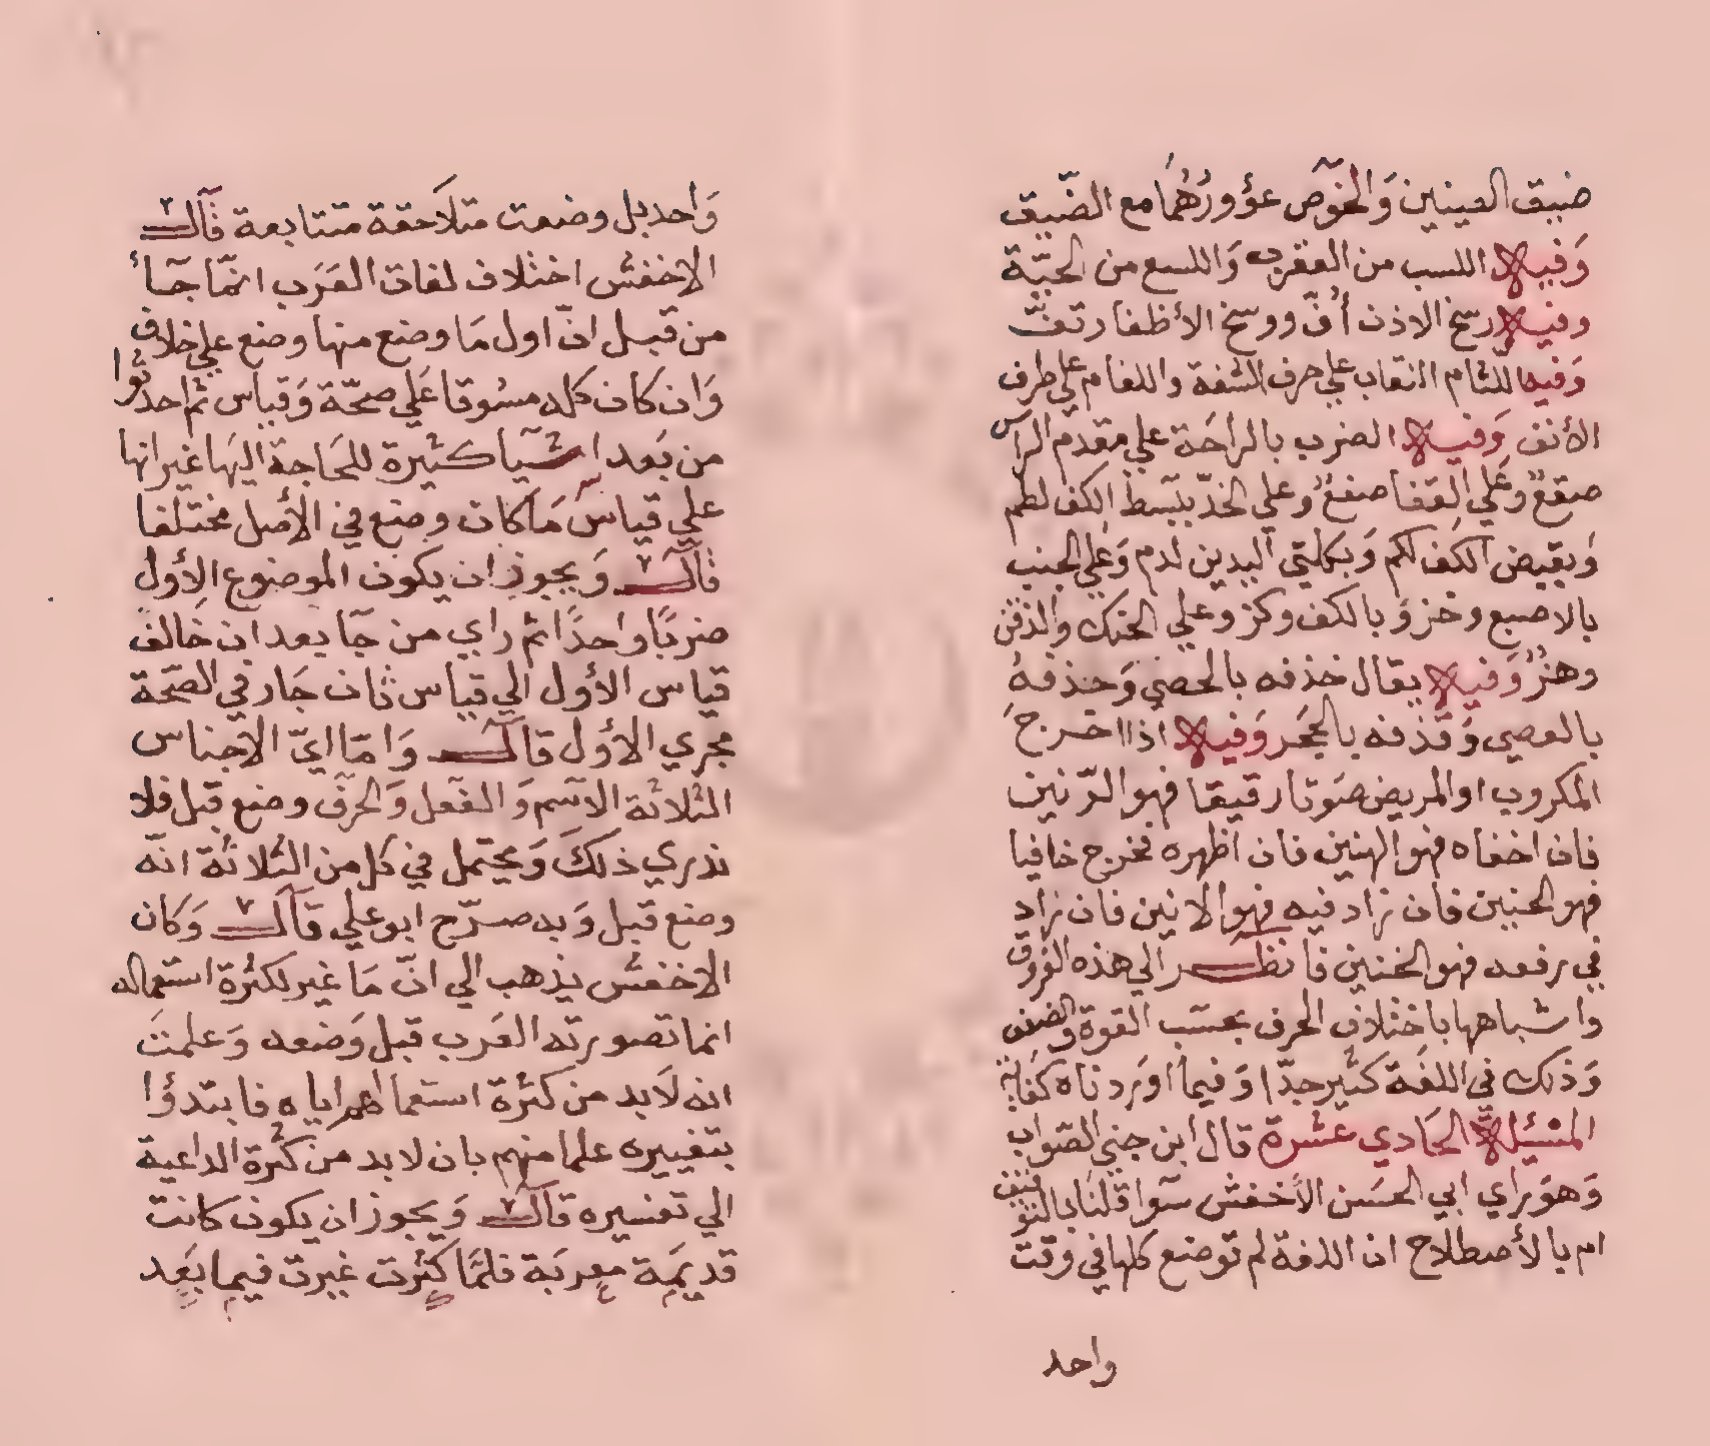 ضيق العينين وَالخوَص غؤورُهُما مع الضّيق
وَفيه اللسب من العقرب وَاللسع من الحيّة
وفيه وسخ الاذن أفّ ووسخ الأظفار تفّ
وَفيه اللثام النقاب علي حرف الشفة واللفام علي طرف
الأنف وَفيه الضرب بالراحَة علي مقدم الراس
صقعٌ وعَلي القفا صفعٌ وعلي الخدّ ببَسط الكف لطم
وَبقبض الكف لكم وَبكلتي اليدين لدم وَعلي الجنب
بالاصبع وخز وَبالكف وكز وعلي الحنك والذقن
وهزٌ وَفيه يقال خذفه بالحصي وَحذفهُ
بالعصي وَقذفه بالحجَر وَفيه اذا اخرجَ
المكروب او المريض صَوتا رقيقا فهو الرّنين
فان اخفاه فهو الهنين فان اظهره فخرج خافيا
فهو الحنين فان زاد فيه فهو الانين فان زاد
في رفعه فهو الخنين فانظر الي هذه الفروق
واشباهها باختلاف الحرف بحسَب القوة والضعف
وَذلك في اللغَة كثير جدّا وَفيما اوَردناه كفَاية
المسئلة الحَادي عشرة قال ابن جني الصَواب
وَهوَ راي ابي الحسَن الأخفش سَوا قلنَا بالتوقيف
ام بالأصطلاح ان اللغة لم توضع كلها في وقت
واحد
وَاحد بل وضعت متلاَحقة متتابعة قال
الاخفش اختلاف لغات العَرَب انمّا جَاء
من قبل انّ اول مَا وضع منها وضع علي خلاف
وَان كان كله مسُوقا عَلي صحّة وَقياس ثم احدثوا
من بَعد اشيا كثيرة للحَاجة اليهَا غير انها
علي قياس مَا كان وضع في الأصل مختلفا
قال وَيجوز ان يكون الموضوع الأول
ضربًا واحدًا ثم راي من جَا بعد ان خالفَ
قياس الأول الي قياس ثان جَار في الصّحَة
مجري الأول قال وَامّا ايّ الاجناس
الثلاثة الاسم وَالفعل وَالحرف وضع قبل فلا
ندري ذلكَ وَيحتمل في كل من الثلاثة انّه
وضع قبل وَبه صرّح ابو علي قال وَكان
الاخفش يذهب الي انّ مَا غير لكثرة استعماله
انما تصورته العَرب قبل وَضعه وَعلمتَ
انه لاَبد من كثرة استعمالهم اياه فابتدؤا
بتغييره علما منهم بان لا بد من كثرة الداعية
الي تغسيره قال وَيجوز ان يكون كانت
قديمَة معربَة فلمَّا كثرت غيرت فيما بَعد